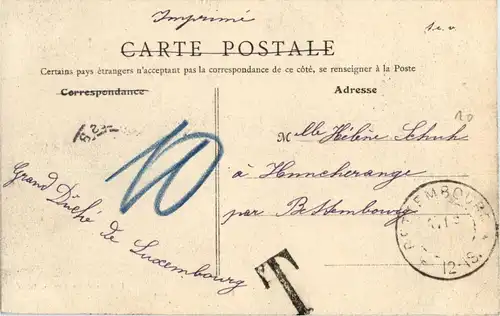 Imprimé
s.e.v.
CARTE POSTALE
Certains pays étrangers n'acceptant pas la correspondance de ce côté, se renseigner à la Poste
Correspondance
Adresse
20
10
Mlle Hélène Schuh
à Huncherange
par Bettembourg
Grand Duché de Luxembourg
BETTEMBOURG
12-1S.
T